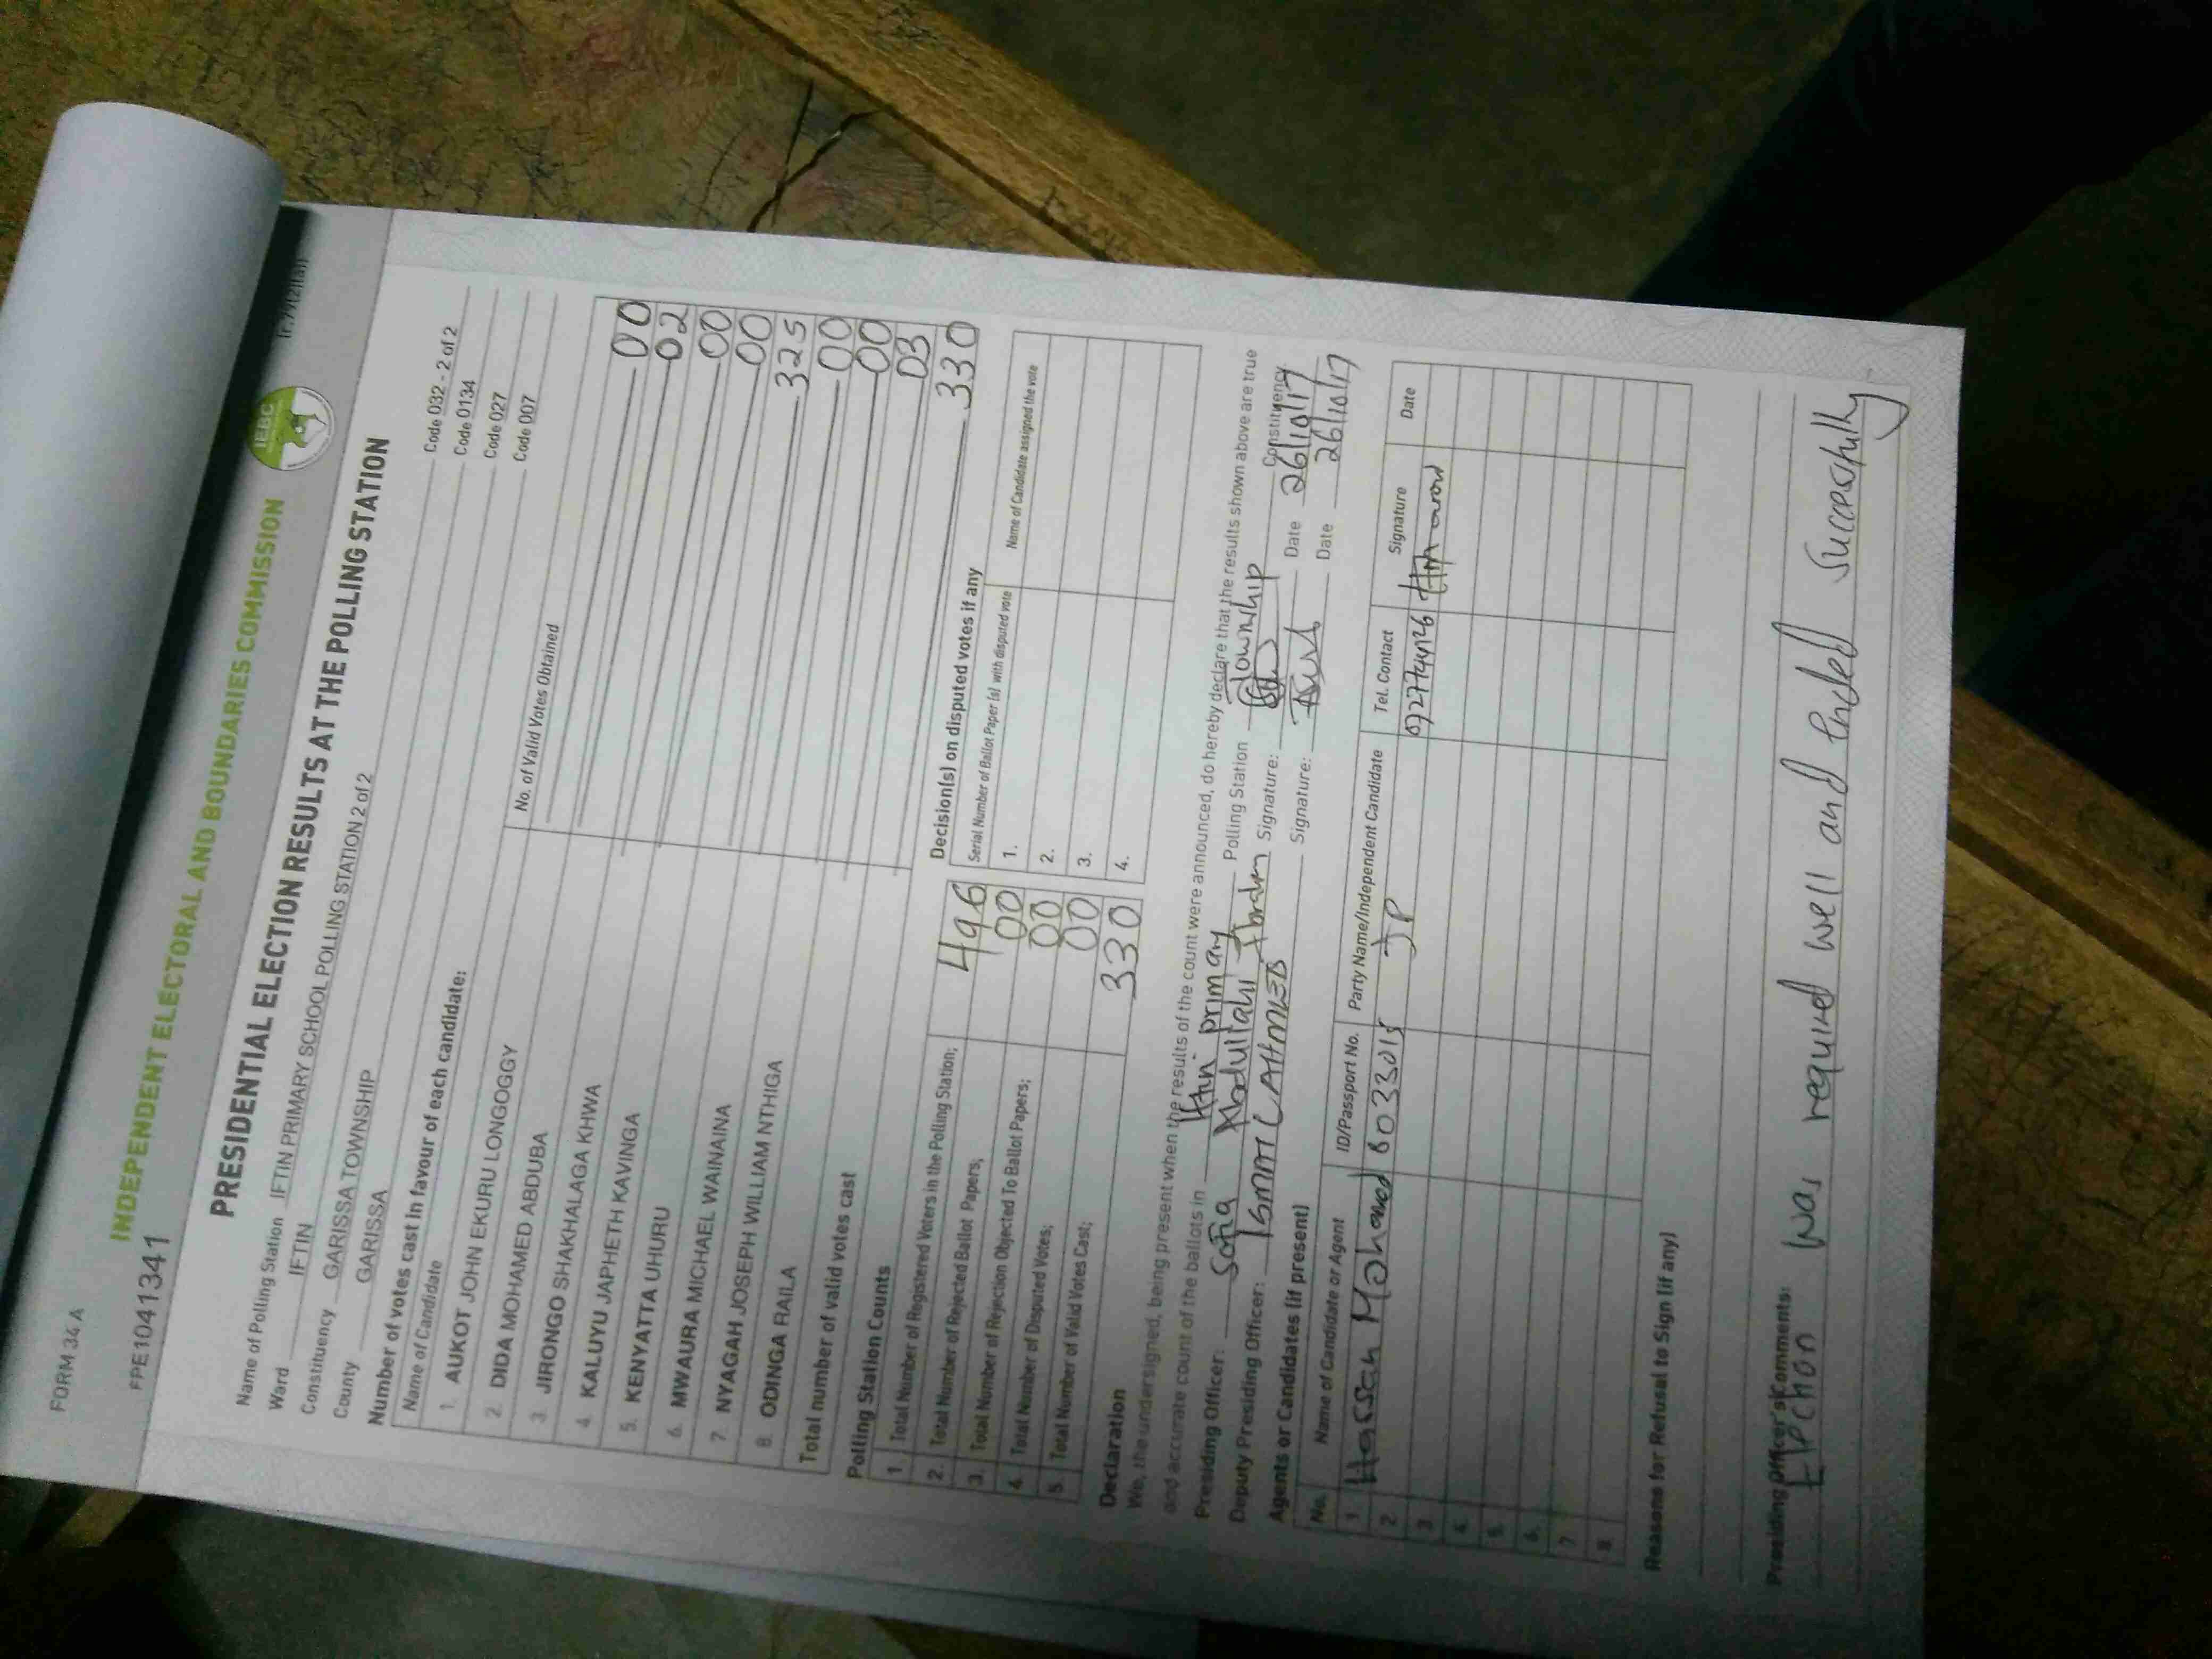 FORM 34 A
(r. 79(2)(a))
FPE1041341
INDEPENDENT ELECTORAL AND BOUNDARIES COMMISSION
IEBC
PRESIDENTIAL ELECTION RESULTS AT THE POLLING STATION
Name of Polling Station IFTIN PRIMARY SCHOOL POLLING STATION 2 of 2 Code 032 - 2 of 2
Ward IFTIN Code 0134
Constituency GARISSA TOWNSHIP Code 027
County GARISSA Code 007
Number of votes cast in favour of each candidate:
Name of Candidate No. of Valid Votes Obtained
1. AUKOT JOHN EKURU LONGOGGY 00
2. DIDA MOHAMED ABDUBA 02
3 JIRONGO SHAKHALAGA KHWA 00
4. KALUYU JAPHETH KAVINGA 00
5. KENYATTA UHURU 325
6. MWAURA MICHAEL WAINAINA 00
7. NYAGAH JOSEPH WILLIAM NTHIGA 00
8. ODINGA RAILA 03
Total number of valid votes cast 330
Polling Station Counts
1. Total Number of Registered Voters in the Polling Station; 496
2. Total Number of Rejected Ballot Papers; 00
3. Total Number of Rejection Objected To Ballot Papers; 00
4. Total Number of Disputed Votes; 00
5. Total Number of Valid Votes Cast; 330
Decision(s) on disputed votes if any
Serial Number of Ballot Paper (s) with disputed vote Name of Candidate assigned the vote
1.
2.
3.
4.
Declaration
We, the undersigned, being present when the results of the count were announced, do hereby declare that the results shown above are true
and accurate count of the ballots in Iftin primary Polling Station Township Constituency
Presiding Officer: Sofia Abdullahi Ibrahim Signature: Date 26/10/17
Deputy Presiding Officer: Signature: Date 26/10/17
Agents or Candidates (if present)
No. Name of Candidate or Agent ID/Passport No. Party Name/Independent Candidate Tel. Contact Signature Date
1 Hassan Mohamed 8033015 JP
2
3
4.
5.
6.
7
8
Reasons for Refusal to Sign (if any)
Presiding Officer's Comments:
Election was required well and ended successfully